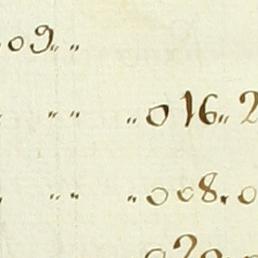 09„ „
„ „ „016„2
„ „ „008.0
020